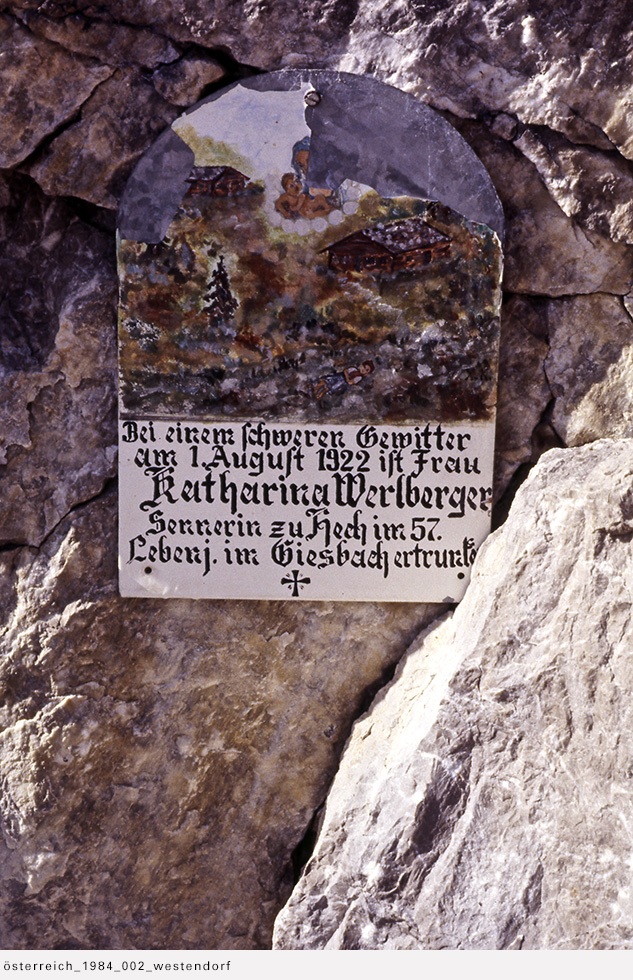 Bei einem schweren Gewitter
am 1. August 1922 ist Frau
Katharina Werlberger
Sennerin zu Hech im 57.
Lebenj. im Giesbach ertrunke
österreich_1984_002_westendorf